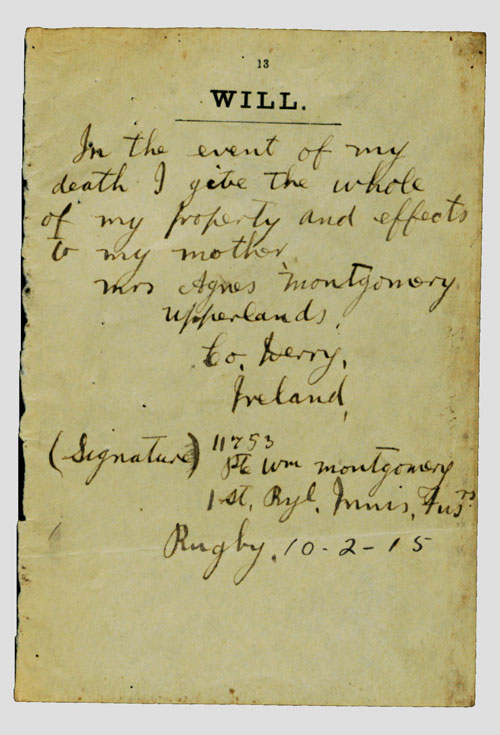 13
WILL.
In the event of my
death I give the whole
of my property and effects
to my mother
Mrs Agnes Montgomery
Upperlands,
Co. Derry,
Ireland,
(Signature) 11753
Pte Wm Montgomery
1st. Ryl. Innis. Fusrs
Rugby. 10-2-15